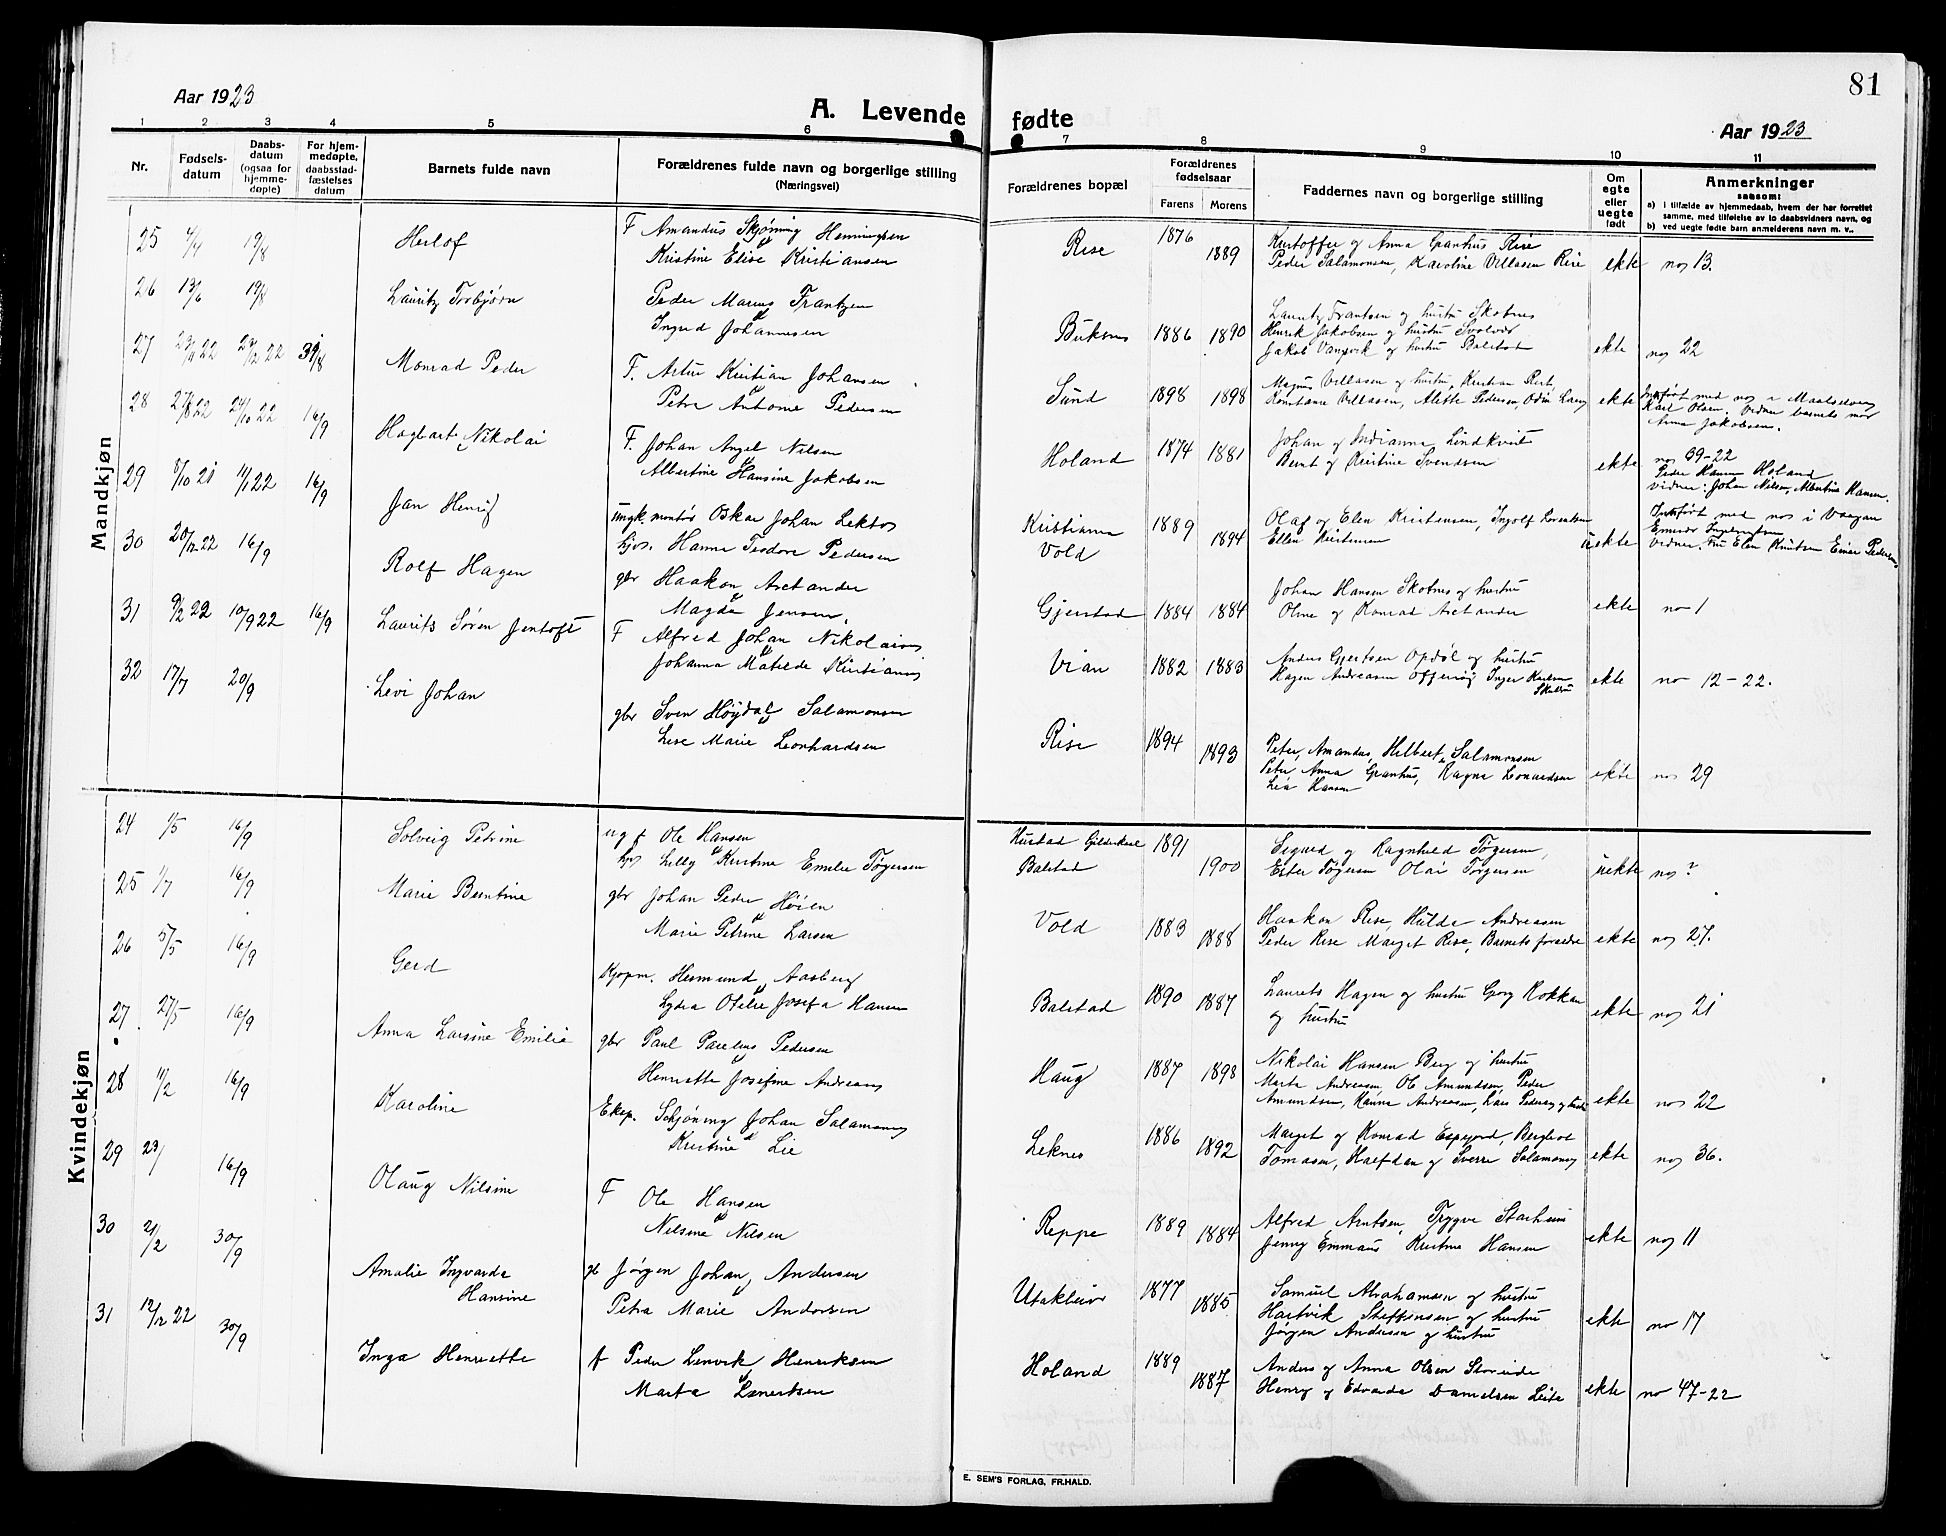 81
Aar 1923
A. Levende fødte
Aar 1923
1 2 3 4 5 6 7 8 9 10 11
Nr.
Fødsels-
datum
Daabs-
datum
(ogsaa for
hjemme-
døpte)
For hjem-
medøpte,
daabsstad-
fæstelses
datum
Barnets fulde navn
Forældrenes fulde navn og borgerlige stilling
(Næringsvei)
Forældrenes bopæl
Forældrenes
fødselsaar
Farens Morens
Faddernes navn og borgerlige stilling
Om
egte
eller
uegte
født
Anmerkninger
saasom:
a) i tilfælde av hjemmedaab, hvem der har forrettet
samme, med tilføielse av to daabsvidners navn, og
b) ved uegte fødte barn anmelderens navn m. v.
Mandkjøn
25 4/4 19/8 Herlof F Amandus Skjøning Henningsen
Kristine Elise Kristiansen
Rise 1876 1889 Kristoffer og Anna Granhus Rise
Peder Salamonsen, Karoline Villasen Rise ekte no 13.
26 13/6 19/8 Lauritz Torbjørn Peder Marius Frantzen
Ingrid Johannesen
Buksnes 1886 1890 Lauritz Frantsen og hustru Skotnes
Henrik Jakobsen og hustru Svolvær
Jakob Vangsvik og hustru Balstad ekte no 22
27 Monrad Peder F. Artur Kristian Johansen
Petra Antonie Pedersen
Sund 1898 1898 Magnus Villasen og hustru, Kristian Rist,
Konstanse Villasen, Alette Pedersen, Odin Larsen ekte Indført med no i Maalselven
Karl Olsen. Vidner barnets mor
Anna Jakobsen.
28 27/8 22 24/10 22 16/9 Hagbart Nikolai F. Johan Angel Nilsen
Albertine Hansine Jakobsen
Holand 1874 1881 Johan og Indianna Lindkvist
Bernt og Kristine Svendsen ekte no 39-22
Peder Hansen Holand
Vidner: Johan Nilsen, Albertine Hansen.
29 8/10 21 11/1 22 16/9 Jan Henrij ungk. montør Oskar Johan Lektos
pjs. Hanna Teodora Pedersen
Kristiania
Vold 1889 1894 Olaf og Elen Kristensen, Ingolf Lorentsen
Ellen Kristensen uekte Indført med no i Vaagan
Vidner. Fru Elen Knutsen Einar Pedersen.
30 20/12 22 16/9 Rolf Hagen gbr Haakon Arctander
Magda Jensen.
Gjerstad 1884 1884 Johan Hansen Skotnes og hustru
Oline og Konrad Arctander ekte no 1
31 9/2 22 10/9 22 16/9 Laurits Søren Jentoft F Alfred Johan Nikolaisen
Johanna Matilde Kristiansen
Vian 1882 1883 Anders Gjertsen Opdøl og hustru
Hagen Andreasen Offersøy Inger Karlsen ekte no 12-22.
32 17/7 20/9 Levi Johan gbr Sven Høydal Salamonsen
Lise Marie Leonhardsen
Rise 1894 1893 Peter, Amandus, Helbert Salamonsen
Peter, Anna Granhus, Ragna Leonardsen
Lea Hansen ekte no 29
Kvindekjøn
24 1/5 16/9 Solveig Petrine ug f Ole Hansen
pjs Lilly Kristine Emelie Tøgersen
Hustad Gildeskaal
Balstad 1891 1900 Sigurd og Ragnhild Tøgersen,
Ester Tøgersen Olai Tørgersen uekte no ?
25 1/7 16/9 Marie Berntine gbr Johan Peder Høien
Marie Petrine Larsen
Vold 1883 1888 Haakon Rise, Hulda Andreasen
Peder Rise Marget Rise, Barnets forældre ekte no 27.
26 5/5 16/9 Gerd Kjøpm. Hermund Aasberg
Lydia Otelie Josefa Hansen
Balstad 1890 1887 Laurits Hagen og hustru Georg Rokkan
og hustru ekte no 21
27 27/5 16/9 Anna Larsine Emilie gbr Paul Parelius Pedersen
Henriette Josefine Andreasen
Haug 1887 1898 Nikolai Hansen Berg og hustru
Marta Andreasen Ole Amundsen, Peder
Amundsen, Hanna Andreasen, Lars Pedersen og hustru ekte no 22
28 11/2 16/9 Karoline Eksp. Schjøning Johan Salamonsen
Kristine Lie
Leknes 1886 1892 Marget og Konrad Espejord, Bergljot
Tomasen, Halfdan og Sverre Salamonsen ekte no 36.
29 23/ 16/9 Olaug Nilsine F Ole Hansen
Nilsine Nilsen
Reppe 1889 1884 Alfred Arntsen, Trygve Starheim
Jenny Emmaus Kristine Hansen ekte no 11
30 21/2 30/9 Amalie Ingvarda
Hansine gb Jørgen Johan Andersen
Petra Marie Andorsen
Utakleiv 1877 1885 Samuel Abrahamsen og hustru
Hartvik Steffensen og hustru
Jørgen Andersen og hustru ekte no 17
31 12/12 22 30/9 Inga Henriette f Peder Lenvik Henriksen
Marta Lænertsen
Holand 1889 1887 Anders og Anna Olsen Storeide
Henry og Edvarda Danielsen Leite ekte no 47-22
E. SEM'S FORLAG, FR.HALD.